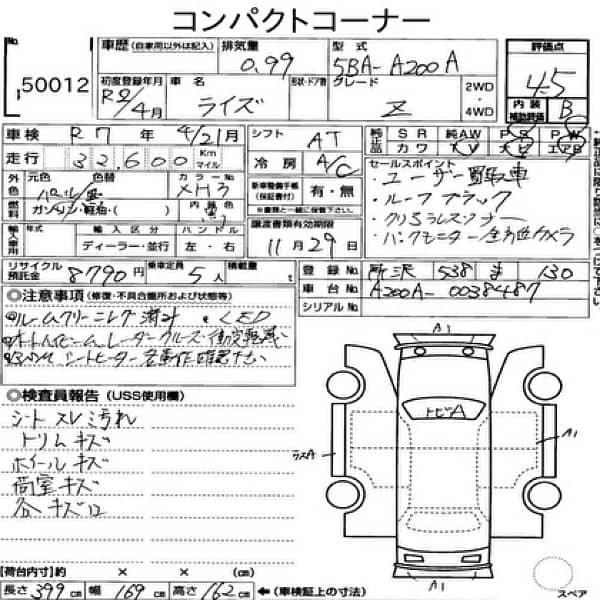 コンパクトコーナー
No.
50012
車歴 (自家用以外は記入)
排気量
0.99
型式
5BA-A200A
評価点
4.5
内装補助評価
B
初度登録年月
R2/4月
車名
ライズ
形状・ドア数
グレード
Z
2WD
・
4WD
車検 R7年 4/21月
シフト AT
純正品
SR 純AW PS PW
カワ TV ナビ エアB
走行 32,600 Km マイル
冷房 A/C
セールスポイント
・ユーザー買取車
・ルーフブラック
・クリアランスソナー
・パノラモニター全方位カメラ
外色
元色
色替
カラーNo.
XH3
新車整備手帳
(保証書付)
有・無
※書類と一緒に送付して下さい。
燃料
ガソリン・軽油・( )
内装色
黒
譲渡書類有効期限
11月29日
輸入車用
年式
輸入区分
ディーラー・並行
ハンドル
左・右
リサイクル預託金
8790円
乗車定員
5人
積載量
登録No. 所沢 538 ま 130
車台No. A200A-0038487
シリアルNo.
◎注意事項 (修復・不具合箇所および状態等)
・ルームクリーニング済み ・LED
・オートハイビーム レーダークルーズ・衝突軽減
・BSM シートヒーター 各動作確認下さい
◎検査員報告 (USS使用欄)
シートスレ汚れ
トリムキズ
ホイールキズ
荷室キズ
各キズ
A1
トビA
A1
A1
【荷台内寸】約 × × (cm)
長さ 399 cm 幅 169 cm 高さ 162 cm ←(車検証上の寸法)
スペア